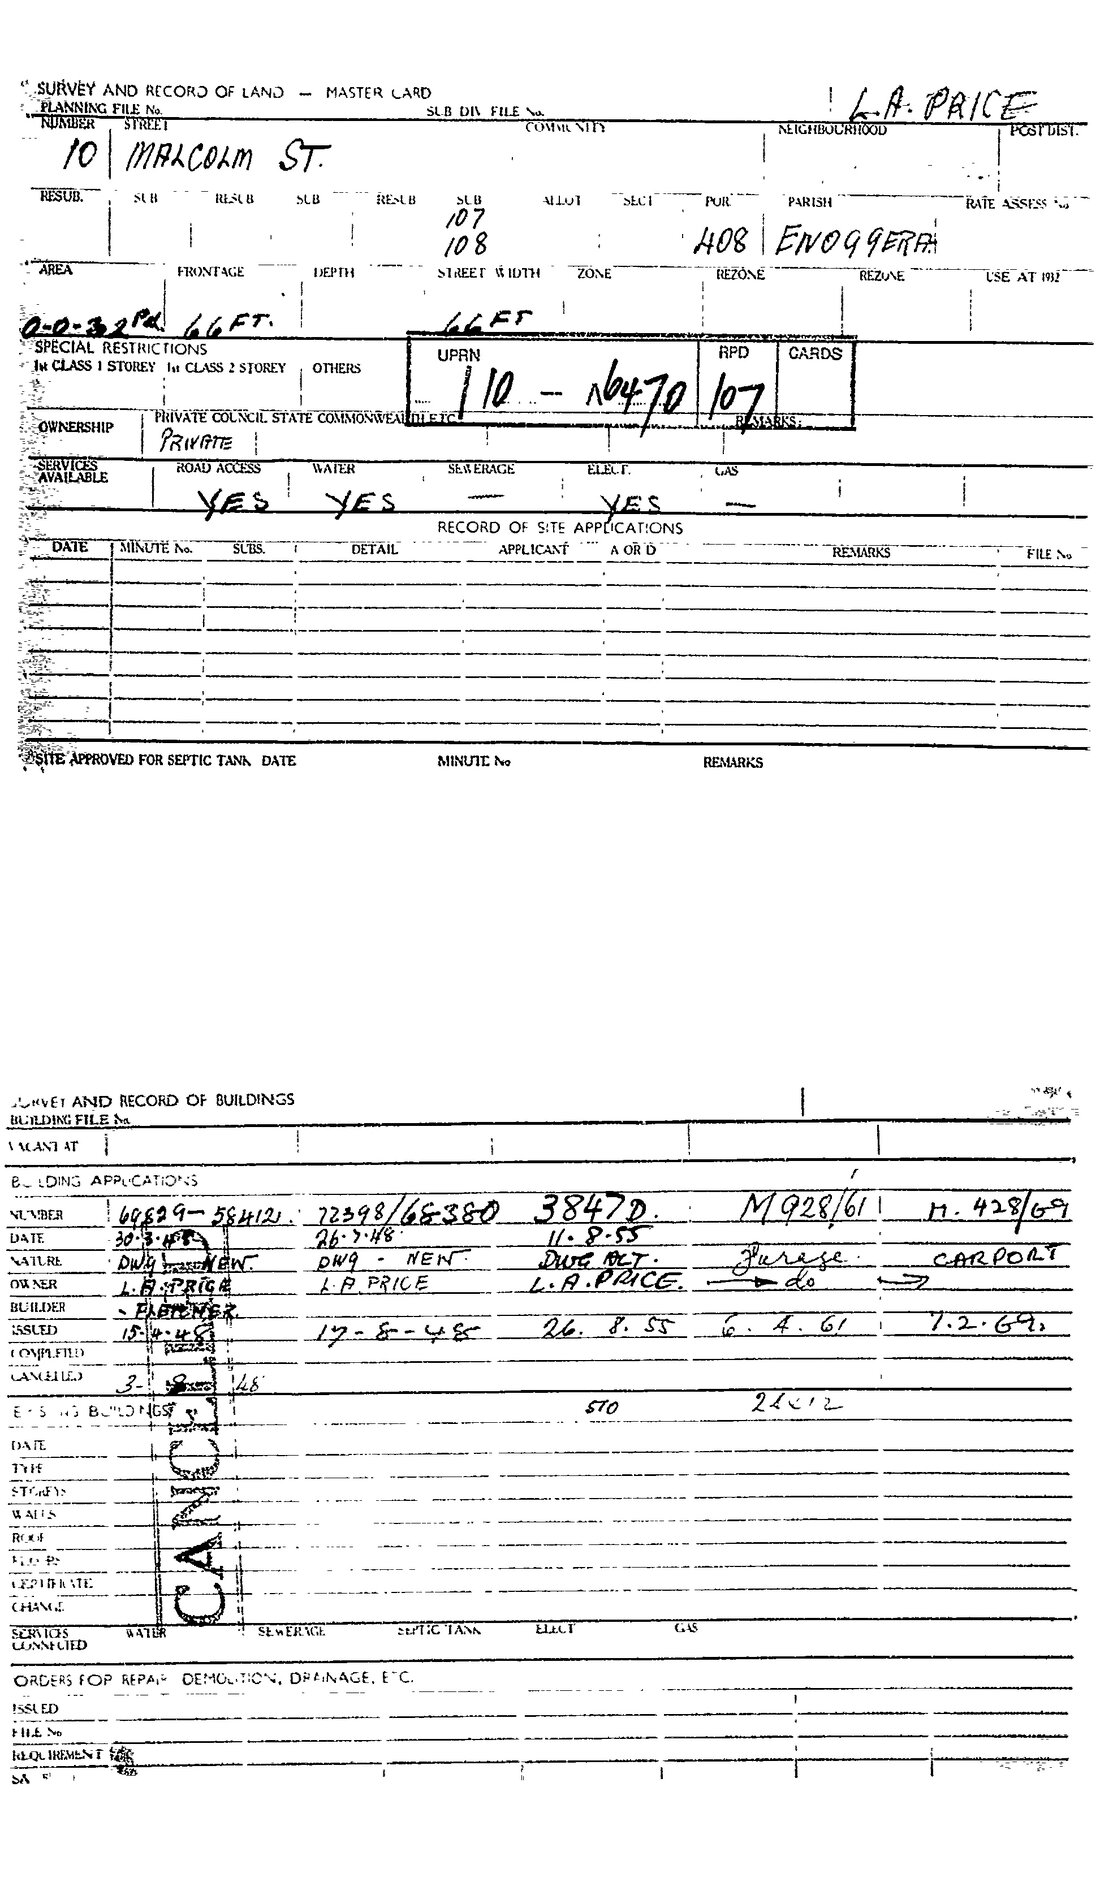 SURVEY AND RECORD OF LAND — MASTER CARD
L.A. PRICE
PLANNING FILE No. SUB DIV FILE No.
NUMBER STREET COMMUNITY NEIGHBOURHOOD POST DIST.
10 MALCOLM ST.
RESUB. SUB RESUB SUB RESUB SUB ALLOT SECT POR PARISH RATE ASSESS No
107
108 408 ENOGGERA
AREA FRONTAGE DEPTH STREET WIDTH ZONE REZONE REZONE USE AT 1932
0-0-32 Pd. 66 FT. 66 FT
SPECIAL RESTRICTIONS
1st CLASS 1 STOREY 1st CLASS 2 STOREY OTHERS
UPRN RPD CARDS
110 — N6470 107
OWNERSHIP PRIVATE COUNCIL STATE COMMONWEALTH ETC. REMARKS:
PRIVATE
SERVICES AVAILABLE ROAD ACCESS WATER SEWERAGE ELECT. GAS
YES YES — YES —
RECORD OF SITE APPLICATIONS
DATE MINUTE No. SUBS. DETAIL APPLICANT A OR D REMARKS FILE No
SITE APPROVED FOR SEPTIC TANK DATE MINUTE No REMARKS
SURVEY AND RECORD OF BUILDINGS
BUILDING FILE No.
VACANT AT
BUILDING APPLICATIONS
NUMBER 69829-58412 72398/68380 3847D. M928/61 M. 428/69
DATE 30.3.48 26.7.48 11.8.55
NATURE DWG NEW. DWG - NEW. DWG ALT. Garage. CARPORT
OWNER L.A.PRICE L.A PRICE L.A.PRICE. do
BUILDER - FLETCHER.
ISSUED 15-4-48 17-8-48 26.8.55 6.4.61 7.2.69.
COMPLETED
CANCELLED 3-8 48
EXISTING BUILDINGS 510
CANCELLED
DATE
TYPE
STOREYS
WALLS
ROOF
FLOORS
CERTIFICATE
CHANGE
SERVICES CONNECTED WATER SEWERAGE SEPTIC TANK ELECT GAS
ORDERS FOR REPAIR DEMOLITION, DRAINAGE, ETC.
ISSUED
FILE No
REQUIREMENT